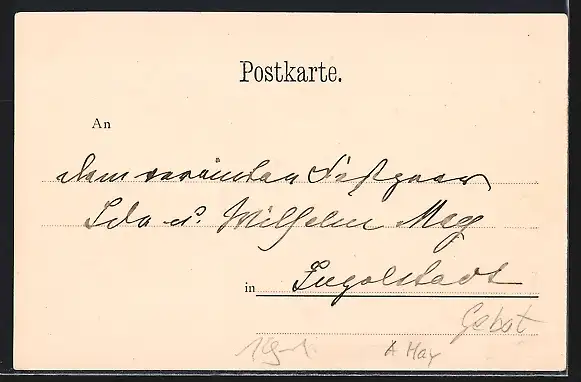 Postkarte.
An
dem verehrten Festpaar
Ida u. Wilhelm May
in Ingolstadt
Gebot
A May